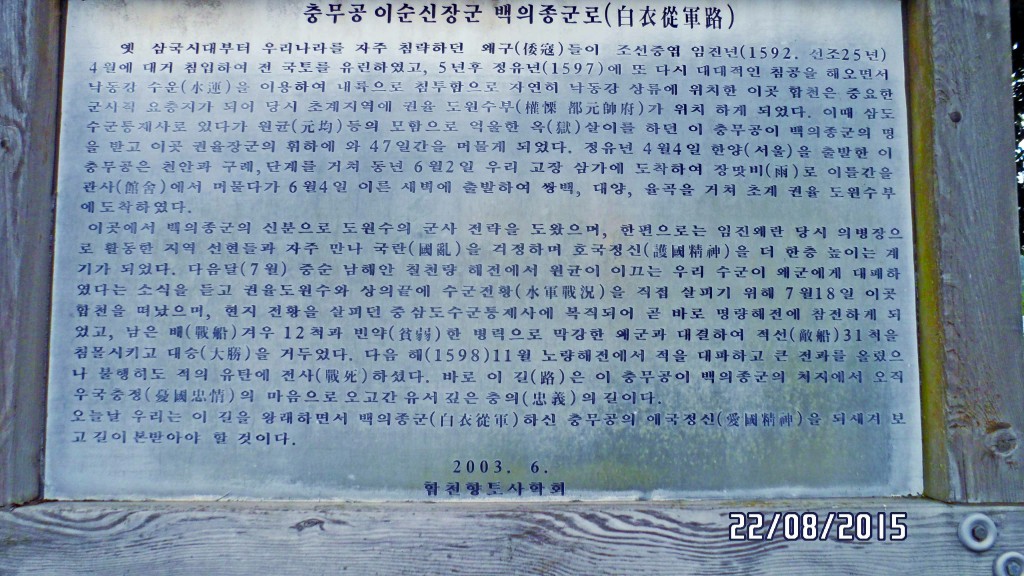 충무공 이순신장군 백의종군로(白衣從軍路)
옛 삼국시대부터 우리나라를 자주 침략하던 왜구(倭寇)들이 조선중엽 임진년(1592. 선조25년)
4월에 대거 침입하여 전 국토를 유린하였고, 5년후 정유년(1597)에 또 다시 대대적인 침공을 해오면서
낙동강 수운(水運)을 이용하여 내륙으로 침투함으로 자연히 낙동강 상류에 위치한 이곳 합천은 중요한
군사적 요충지가 되어 당시 초계지역에 권율 도원수부(權慄 都元帥府)가 위치 하게 되었다. 이때 삼도
수군통제사로 있다가 원균(元均)등의 모함으로 억울한 옥(獄)살이를 하던 이 충무공이 백의종군의 명
을 받고 이곳 권율장군의 휘하에 와 47일간을 머물게 되었다. 정유년 4월4일 한양(서울)을 출발한 이
충무공은 천안과 구례,단계를 거쳐 동년 6월2일 우리 고장 삼가에 도착하여 장맛비(雨)로 이틀간을
관사(館舍)에서 머물다가 6월4일 이른 새벽에 출발하여 쌍백, 대양, 율곡을 거쳐 초계 권율 도원수부
에도착하였다.
이곳에서 백의종군의 신분으로 도원수의 군사 전략을 도왔으며, 한편으로는 임진왜란 당시 의병장으
로 활동한 지역 선현들과 자주 만나 국란(國亂)을 걱정하며 호국정신(護國精神)을 더 한층 높이는 계
기가 되었다. 다음달(7월) 중순 남해안 칠천량 해전에서 원균이 이끄는 우리 수군이 왜군에게 대패하
였다는 소식을 듣고 권율도원수와 상의끝에 수군전황(水軍戰況)을 직접 살피기 위해 7월18일 이곳
합천을 떠났으며, 현지 전황을 살피던 중삼도수군통제사에 복직되어 곧 바로 명량해전에 참전하게 되
었고, 남은 배(戰船)겨우 12척과 빈약(貧弱)한 병력으로 막강한 왜군과 대결하여 적선(敵船)31척을
침몰시키고 대승(大勝)을 거두었다. 다음 해(1598)11월 노량해전에서 적을 대파하고 큰 전과를 올렸으
나 불행히도 적의 유탄에 전사(戰死)하셨다. 바로 이 길(路)은 이 충무공이 백의종군의 처지에서 오직
우국충정(憂國忠情)의 마음으로 오고간 유서 깊은 충의(忠義)의 길이다.
오늘날 우리는 이 길을 왕래하면서 백의종군(白衣從軍)하신 충무공의 애국정신(愛國精神)을 되새겨 보
고 길이 본받아야 할 것이다.
2003. 6.
합천향토사학회
22/08/2015